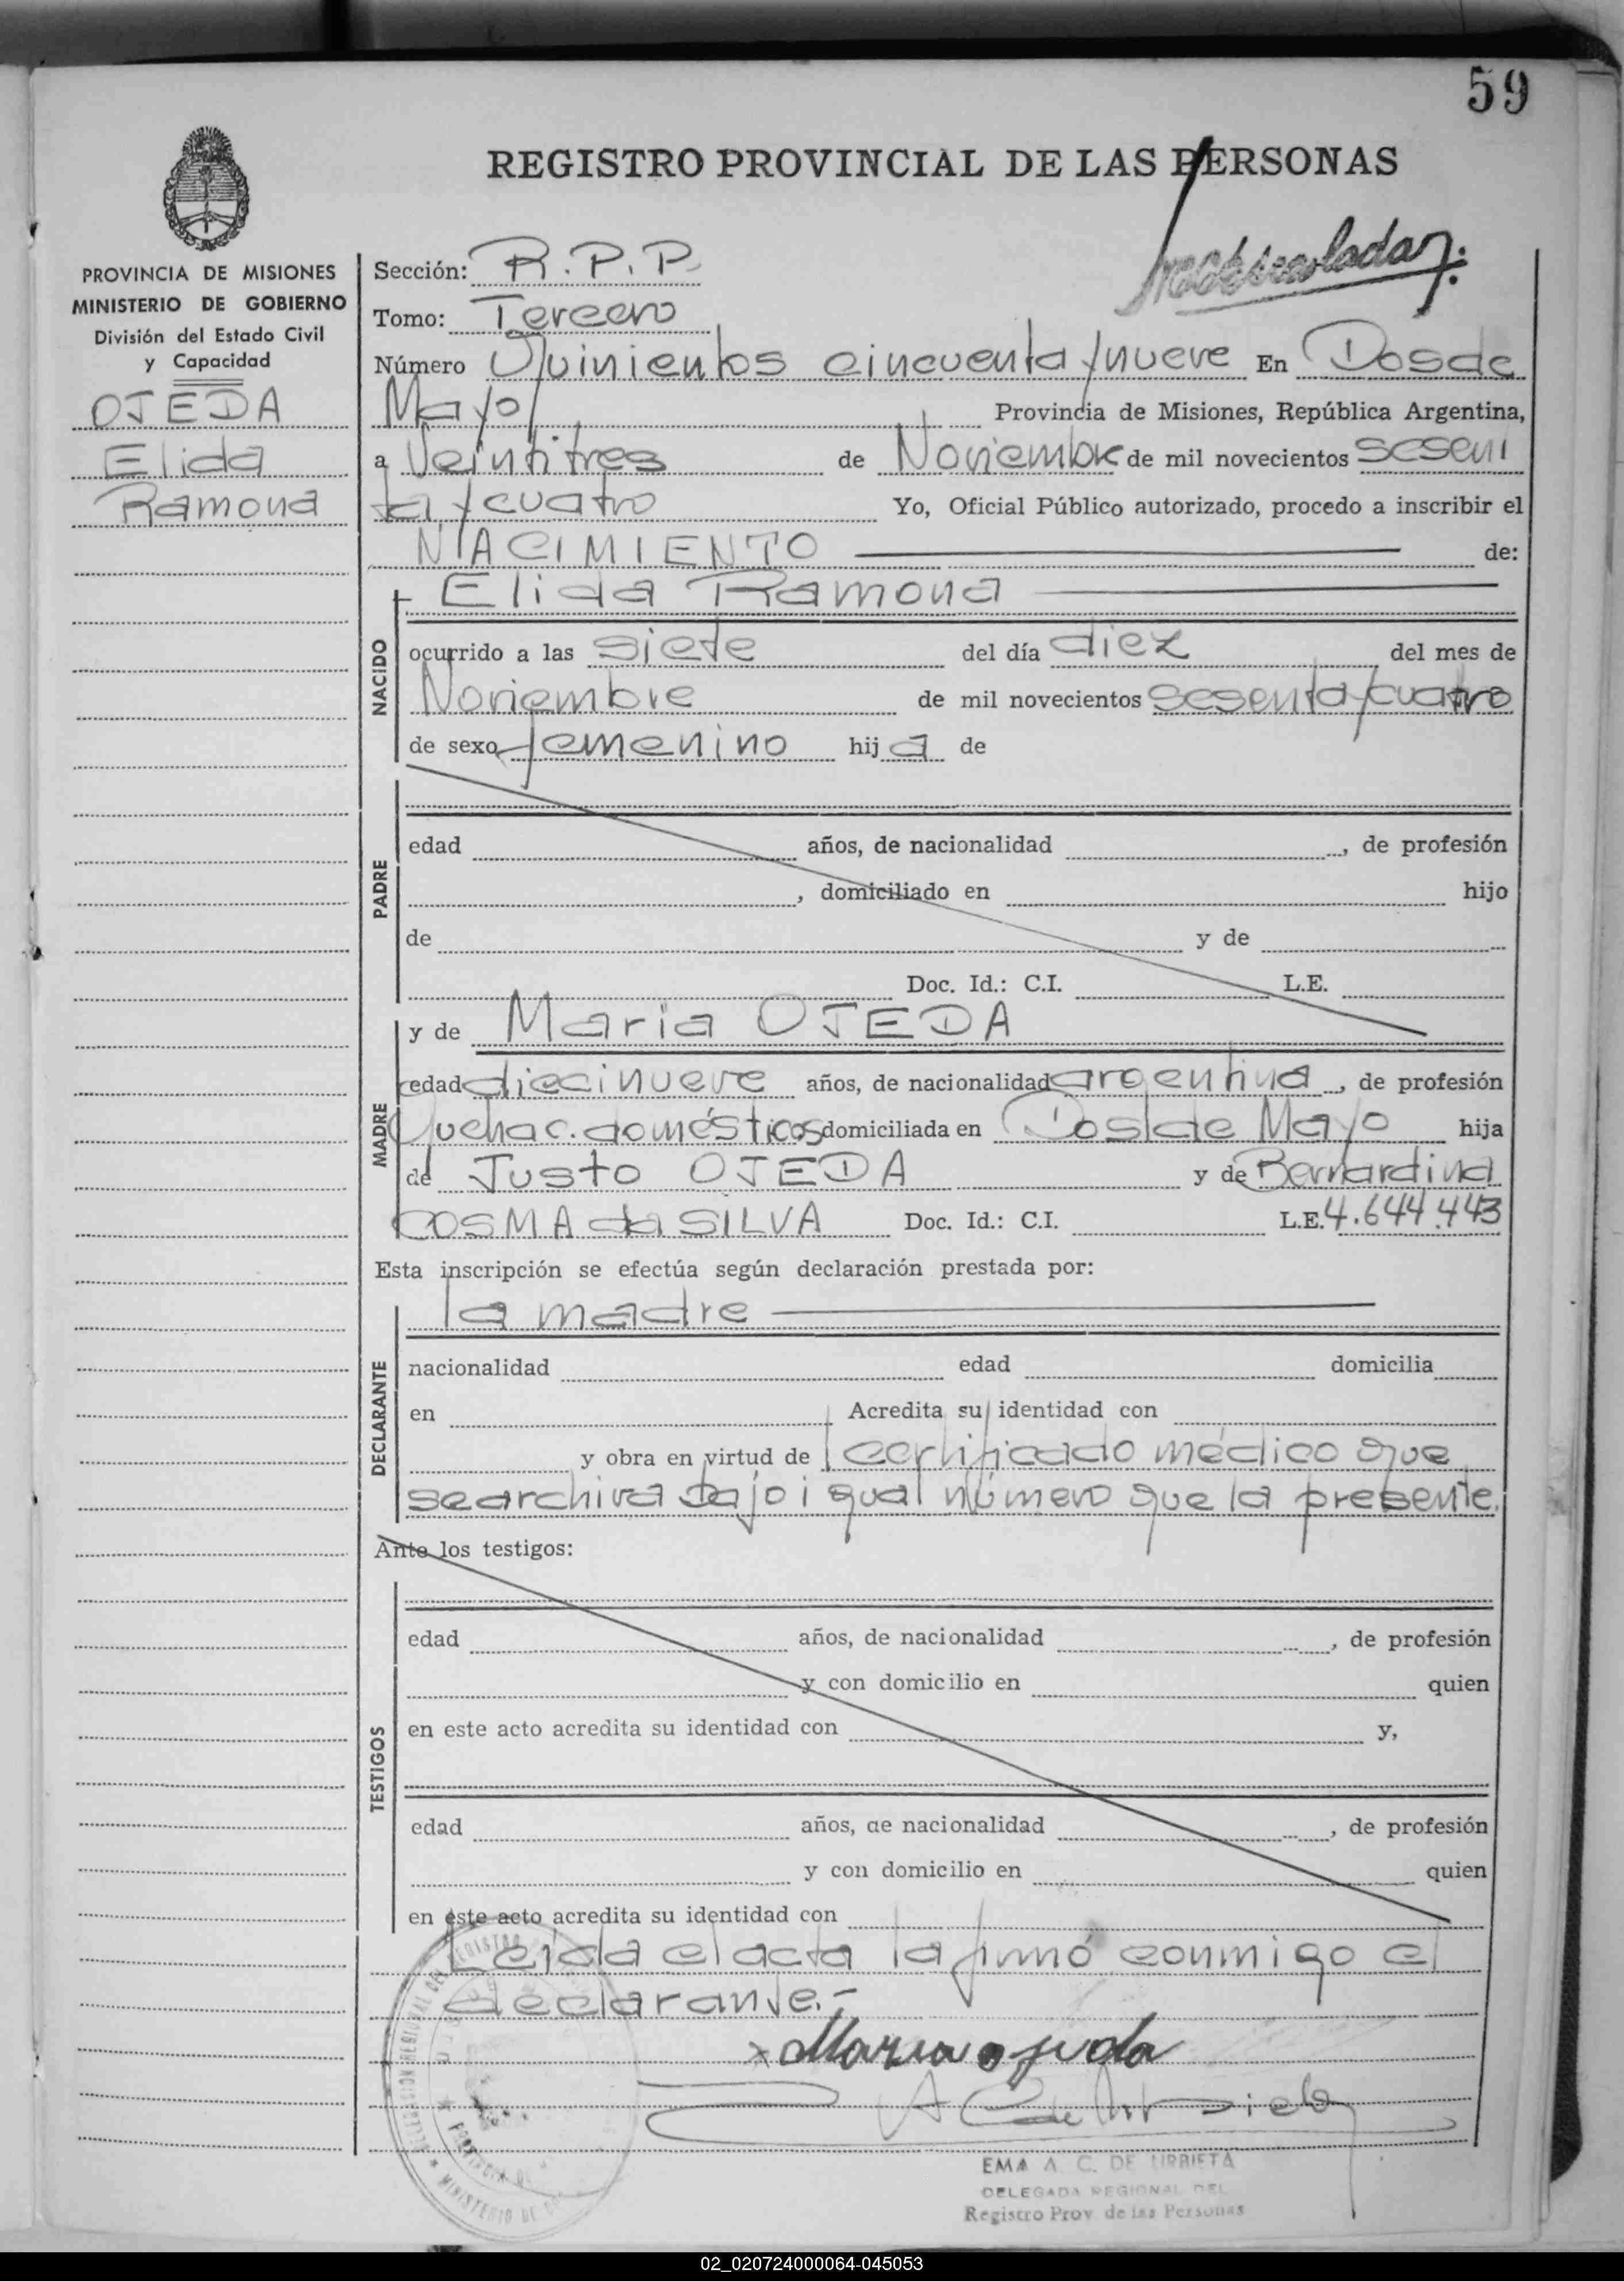 59
REGISTRO PROVINCIAL DE LAS PERSONAS
PROVINCIA DE MISIONES
MINISTERIO DE GOBIERNO
División del Estado Civil
y Capacidad
OJEDA
Elida
Ramona
Sección: R.P.P.
Tomo: Tercero
Número Quinientos cincuenta y nueve En Dos de
Mayo Provincia de Misiones, República Argentina,
a Veintitres de Noviembre de mil novecientos sesen
ta y cuatro Yo, Oficial Público autorizado, procedo a inscribir el
NACIMIENTO de:
Elida Ramona
NACIDO
ocurrido a las siete del día diez del mes de
Noviembre de mil novecientos sesenta y cuatro
de sexo femenino hij a de
PADRE
edad años, de nacionalidad , de profesión
, domiciliado en hijo
de y de
Doc. Id.: C.I. L.E.
MADRE
y de Maria OJEDA
edad diecinueve años, de nacionalidad argentina , de profesión
Quehac. domésticos domiciliada en Dos de Mayo hija
de Justo OJEDA y de Bernardina
COSMA da SILVA Doc. Id.: C.I. L.E. 4.644.443
Esta inscripción se efectúa según declaración prestada por:
la madre
DECLARANTE
nacionalidad edad domicilia
en Acredita su identidad con
y obra en virtud de certificado médico que
se archiva bajo igual número que la presente.
Ante los testigos:
TESTIGOS
edad años, de nacionalidad , de profesión
y con domicilio en quien
en este acto acredita su identidad con y,
edad años, de nacionalidad , de profesión
y con domicilio en quien
en este acto acredita su identidad con
Leida el acta la firmó conmigo el
declarante.-
x Maria ojeda
EMA A. C. DE URBIETA
DELEGADA REGIONAL DEL
Registro Prov. de las Personas
02_020724000064-045053